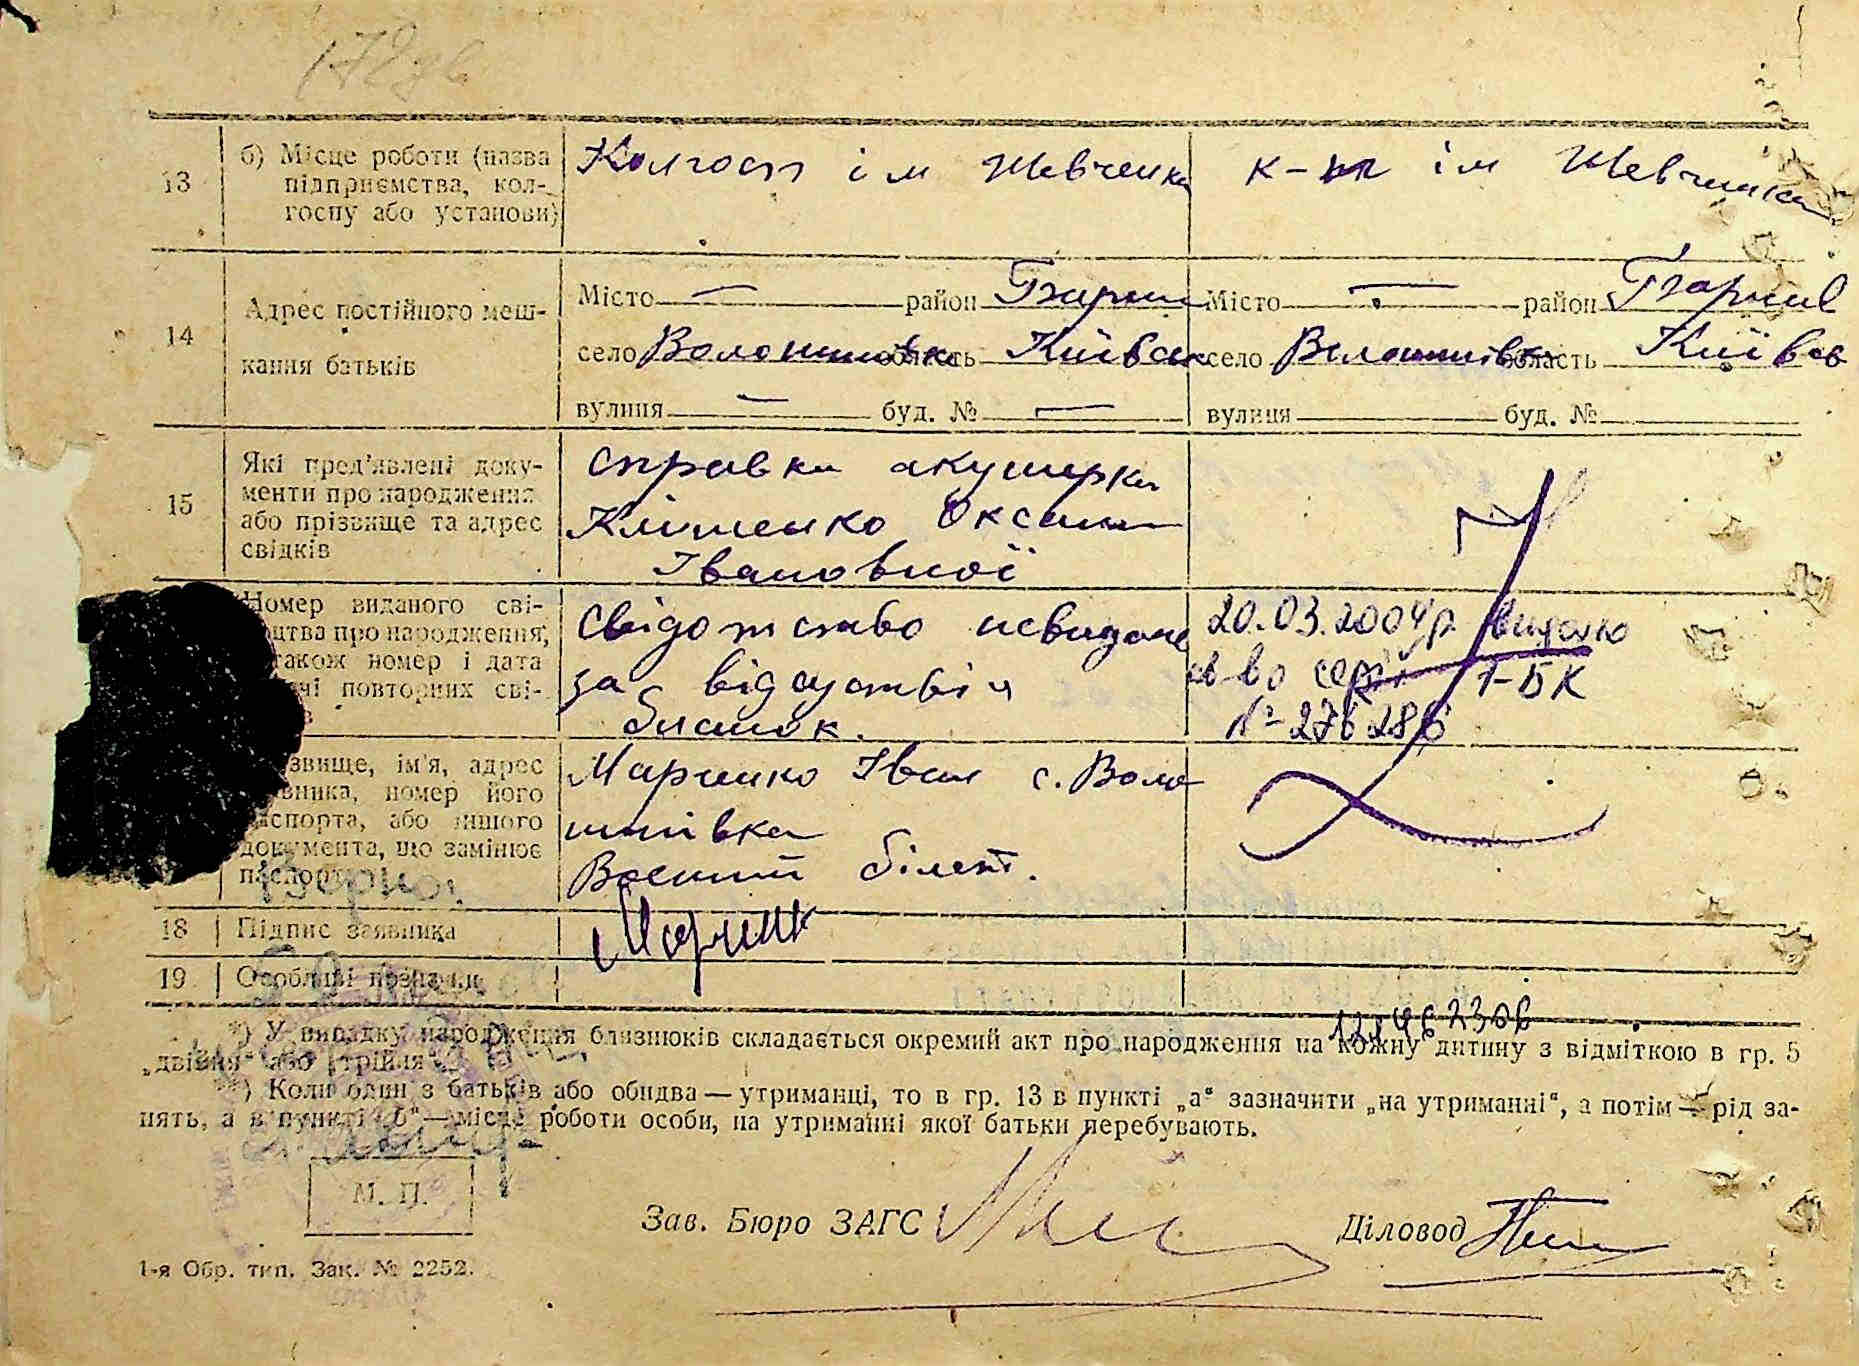 178 зв
13
б) Місце роботи (назва підприємства, колгоспу або установи)
Колгосп ім Шевченка
к-п ім Шевченка
14
Адрес постійного мешкання батьків
Місто — район
село Волошинівка область Київськ
вулиця — буд. № —
Місто — район
село Волошинівка область Київсь
вулиця буд. №
15
Які пред'явлені документи про народження або прізвище та адрес свідків
справка акушерки
Кліменко Оксани
Івановної
Номер виданого сві-
цтва про народження,
також номер і дата
чі повторних сві-
в
свідотство невидане
за відсутвія
бланок.
20.03.2004р. видано
св во серії І-БК
№ 276286
звище, ім'я, адрес
вника, номер його
спорта, або іншого
документа, що замінює
паспорт
Марченко Іван с. Воло
шинівка
Воєнний білет.
18 Підпис заявника
Марченк
19 Особливі позначки
*) У випадку народження близнюків складається окремий акт про народження на кожну дитину з відміткою в гр. 5
„двійня" або „трійня".
**) Коли один з батьків або обидва — утриманці, то в гр. 13 в пункті „а" зазначити „на утриманні", а потім — рід за-
нять, а в пункті „б" — місце роботи особи, на утриманні якої батьки перебувають.
М. П.
Зав. Бюро ЗАГС
Діловод
1-я Обр. тип. Зак. № 2252.